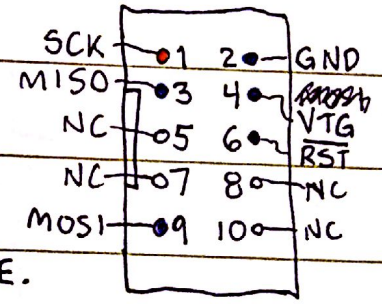 SCK 1 2 GND
MISO 3 4
VTG
NC 5 6
RST
NC 7 8 NC
MOSI 9 10 NC
E.